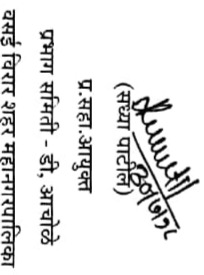 (संध्या पाटील)
प्र.सहा.आयुक्त
प्रभाग समिती - डी, आचोळे
वसई विरार शहर महानगरपालिका